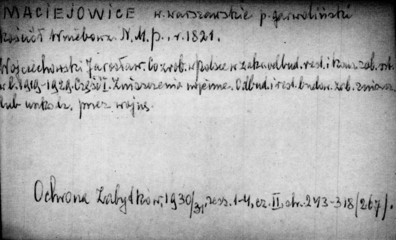 MACIEJOWICE w. warszawskie p. garwoliński
kościół Wniebowz. N.M.P., r. 1821.
Wojciechowski Jarosław. Co zrob. w Polsce w zak. odbud. rest. i kons. zab. szt.
w l. 1919-1929. Część I. Zniszczenia wojenne. Odbud. i rest. budow. zab. zniszcz.
lub uszkodz. przez wojnę.
Ochrona Zabytków, 1930/31, zesz. 1-4, cz. II, str. 243-318 (267).